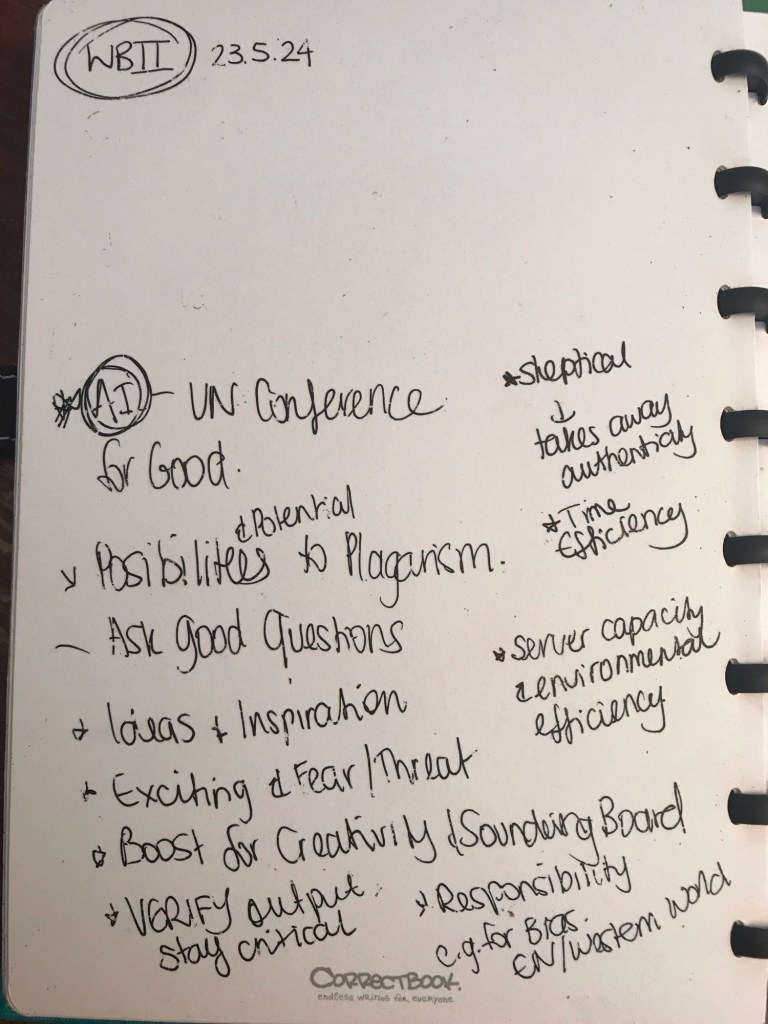 WBII 23.5.24
AI - UN Conference
for Good.
& Potential
Posibilitees to Plagarism.
- Ask good Questions
+ Ideas + Inspiration
+ Exciting & Fear/Threat
* Boost for Creativity & Soundeing Board
* VERIFY output
stay critical
* Skeptical
↓
takes away
authenticity
* Time
Efficiency
* Server capacity
& environmental
efficiency
* Responsibility
e.g. for Bias.
EN/Western World
CORRECTBOOK.
endless writing for everyone